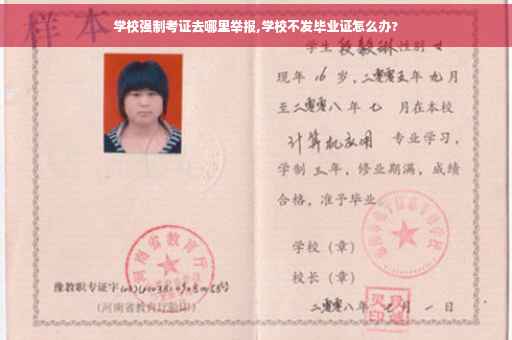 学校强制考证去哪里举报,学校不发毕业证怎么办?
样本
学生段毅琳性别女
现年16岁,二零零五年九月
至二零零八年七月在本校
计算机应用 专业学习,
学制三年,修业期满,成绩
合格,准予毕业
学校(章)
校长(章)
二零零八年七月一日
河南省教育厅
豫教职专证字
(河南省教育厅验印)